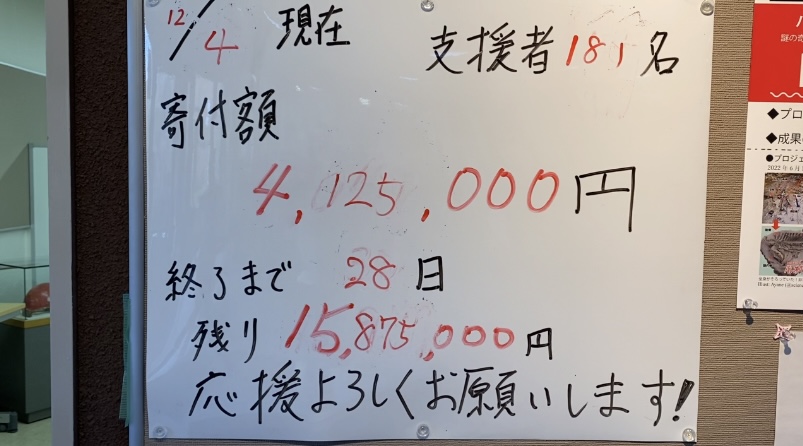 12/4 現在 支援者181名
寄付額
4,125,000円
終了まで 28日
残り 15,875,000円
応援よろしくお願いします!
◆プロ
◆成果
●プロジェ